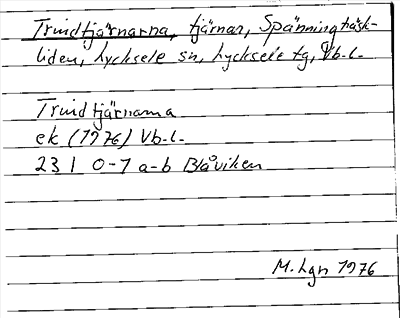 Truidtjärnarna, tjärnar, Spänningträsk-
liden, Lycksele sn, Lycksele tg, Vb.l.
Truidtjärnarna
ek (1976) Vb.l.
23 I 0-1 a-b Blåviken
M. Lgn 1976